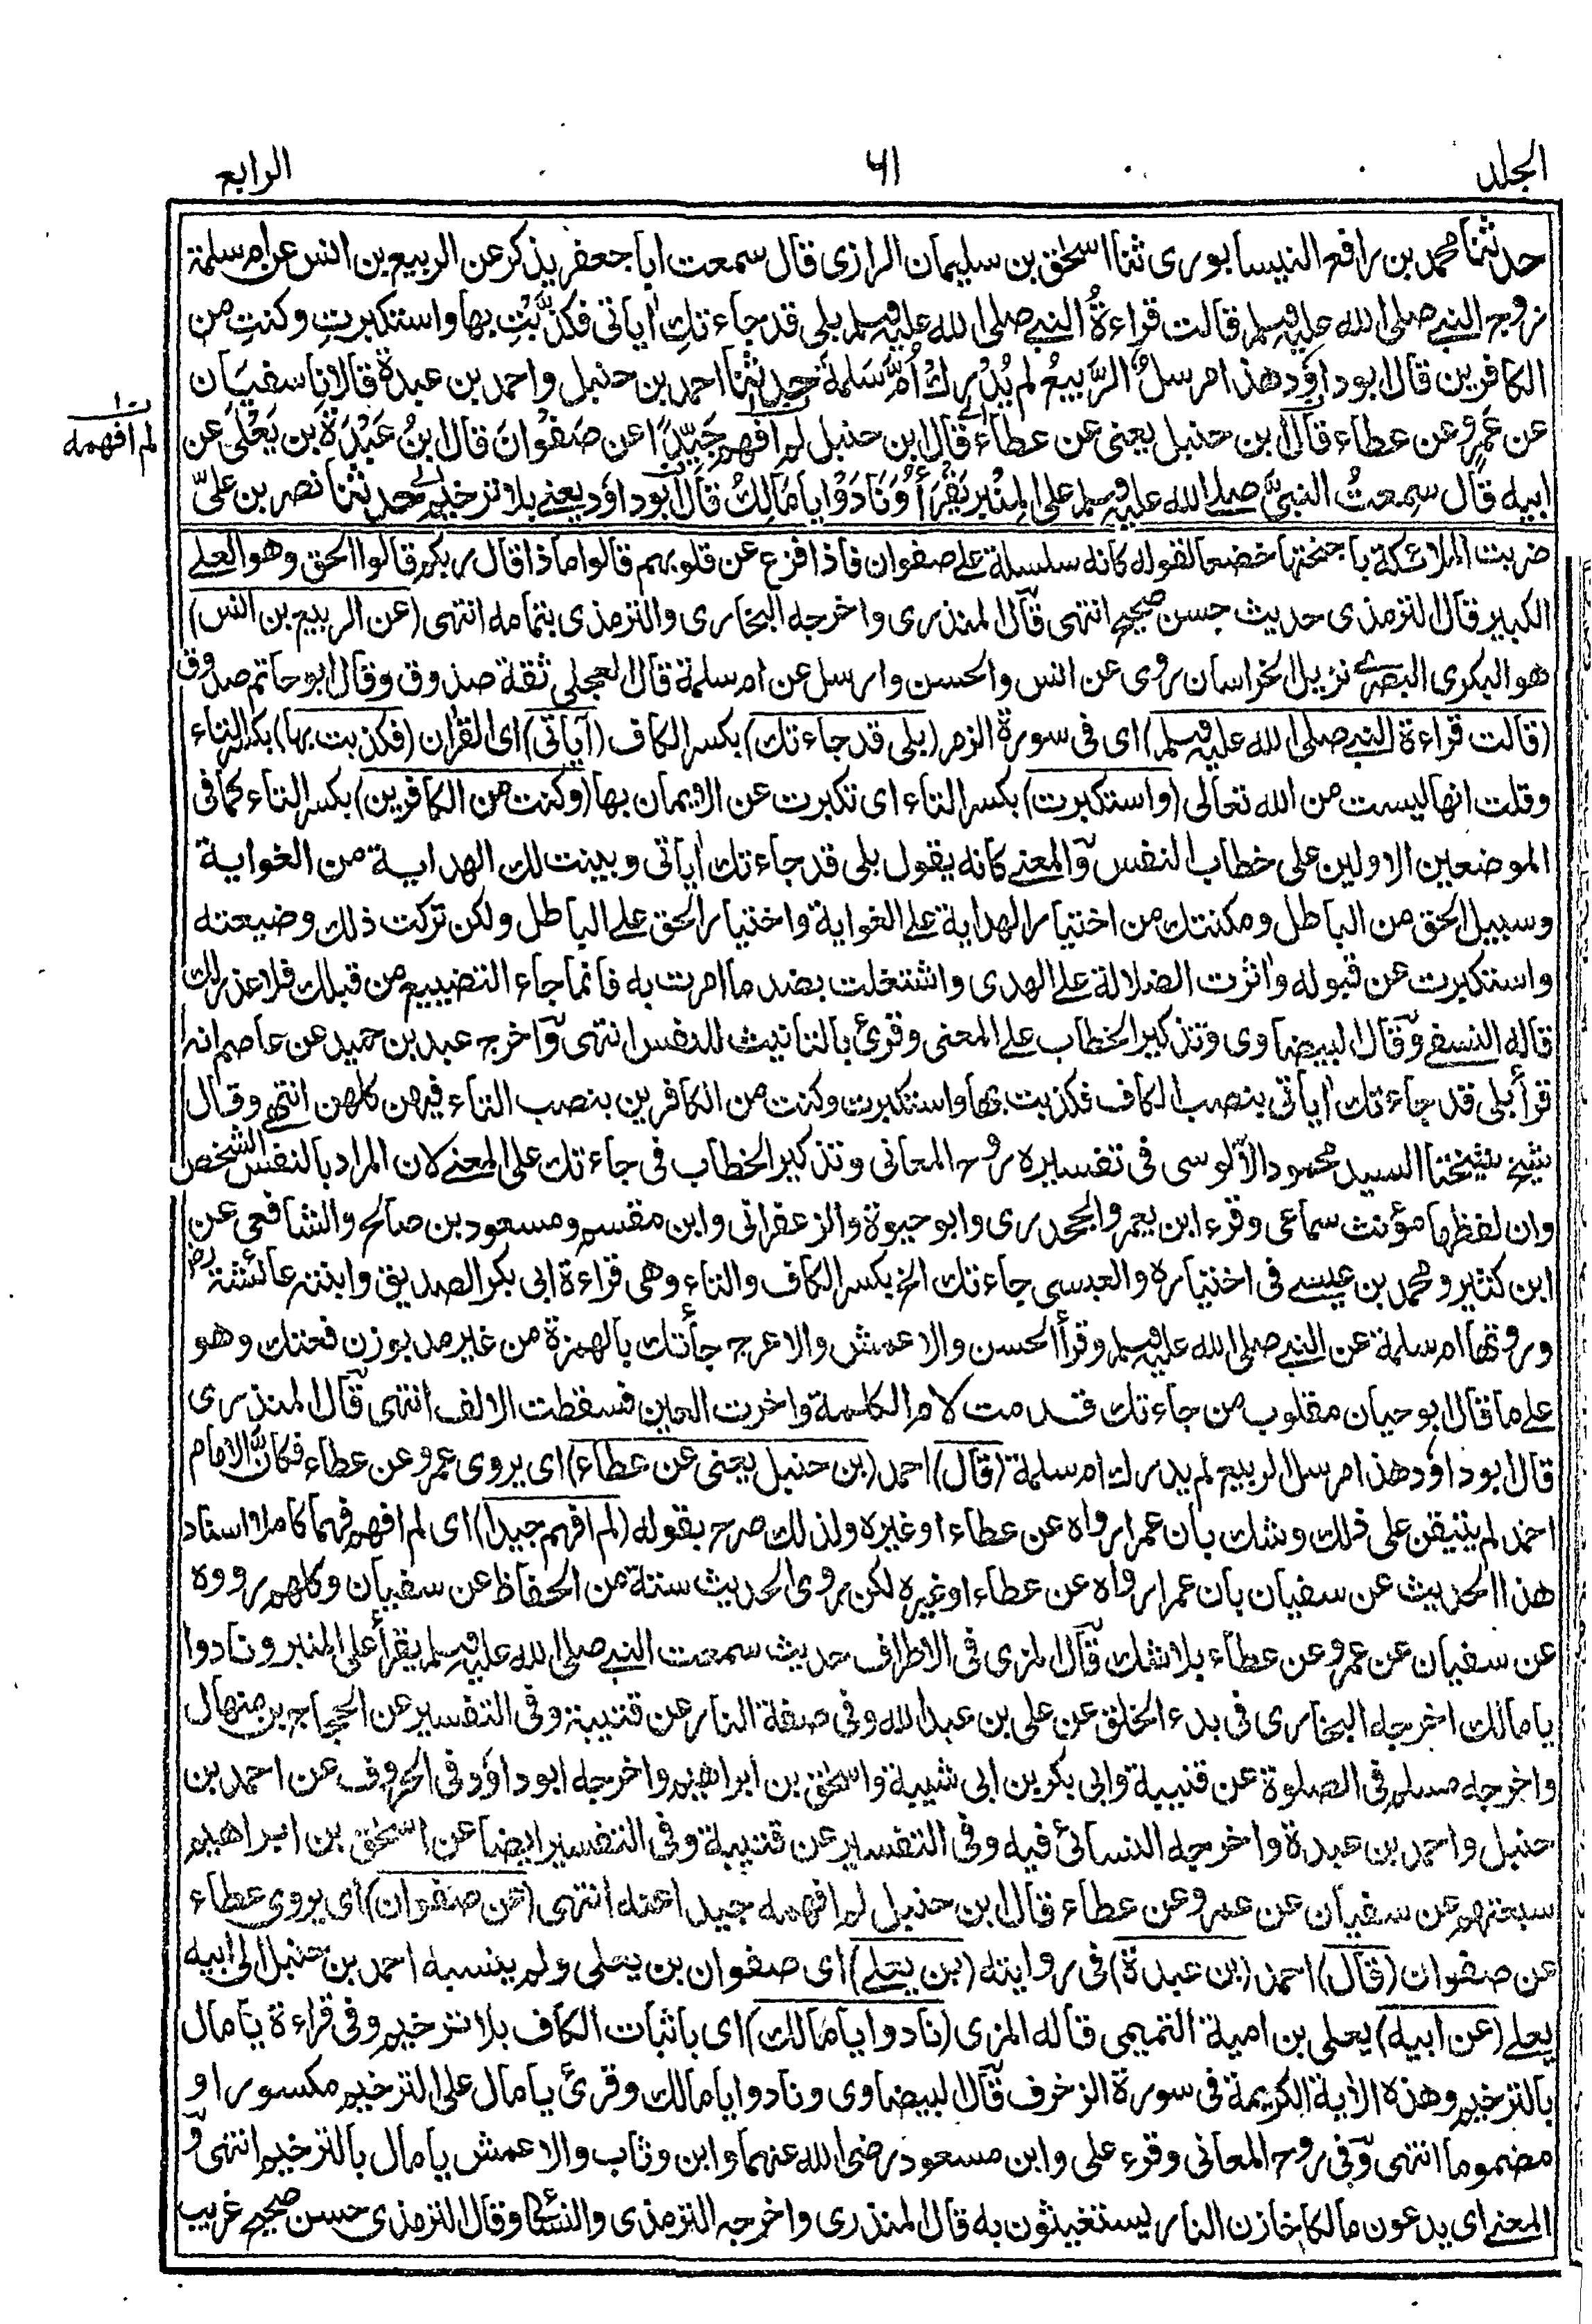 الجلد
٦١
الرابع
حدثنا محمد بن رافع النيسابوري ثنا اسحٰق بن سليمان الرازي قال سمعت ابا جعفر يذكر عن الربيع بن انس عن ام سلمة
زوج النبي صلى الله عليه وسلم قالت قراءةُ النبي صلى الله عليه وسلم بلى قد جاءتكِ اٰياتي فكذّبتِ بها واستكبرتِ وكنتِ من
الكافرين قال ابو داؤد هذا مرسلٌ الرَّبيعُ لم يُدْرِكْ اُمَّ سَلَمَةَ حدثنا احمد بن حنبل واحمد بن عبدة قالا نا سفيان
عن عَمرٍو عن عطاء قال ابن حنبل يعني عن عطاء قال ابن حنبل لم افهم جَيِّدًا عن صَفْوَانَ قال ابنُ عَبْدَةَ بن يَعْلَى عن
ن١
لم افهمه
ابيه قال سمعتُ النبيَّ صلى الله عليه وسلم على المِنْبرِ يَقْرَأُ وَنَادَوْا يَا مَالِكُ قال ابو داؤد يعني بلا ترخيم حدثنا نصر بن عليّ
ضربت الملائكة باجنحتها خضعا لقوله كانه سلسلة على صفوان فاذا فزع عن قلوبهم قالوا ماذا قال ربكم قالوا الحق وهو العلي
الكبير قال الترمذي حديث حسن صحيح انتهى قال المنذري واخرجه البخاري والترمذي بتمامه انتهى (عن الربيع بن انس)
هو البكري البصري نزيل الخراسان روى عن انس والحسن وارسل عن ام سلمة قال العجلي ثقة صدوق وقال ابو حاتم صدوق
(قالت قراءة النبي صلى الله عليه وسلم) اي في سورة الزمر (بلى قد جاءتك) بكسر الكاف (آياتي) اي القرٰان (فكذبت بها) بكسر التاء
وقلت انها ليست من الله تعالى (واستكبرت) بكسر التاء اي تكبرت عن الايمان بها (وكنت من الكافرين) بكسر التاء كما في
الموضعين الاولين على خطاب النفس والمعنى كانه يقول بلى قد جاءتك اٰياتي وبينت لك الهداية من الغواية
وسبيل الحق من الباطل ومكنتك من اختيار الهداية على الغواية واختيار الحق على الباطل ولكن تركت ذلك وضيعته
واستكبرت عن قبوله واٰثرت الضلالة على الهدى واشتغلت بضد ما امرت به فانما جاء التضييع من قبلك فلا عذر لك
قاله النسفي وقال البيضاوي وتذكير الخطاب على المعنى وقرئ بالتانيث للنفس انتهى واخرج عبد بن حميد عن عاصم انه
قرأ بلى قد جاءتك اٰياتي بنصب الكاف فكذبت بها واستكبرت وكنت من الكافرين بنصب التاء فيهن كلهن انتهى وقال
شيخ شيخنا السيد محمود الآلوسي في تفسيره روح المعاني وتذكير الخطاب في جاءتك على المعنى لان المراد بالنفس الشخص
وان لفظها مؤنث سماعي وقرء ابن يعمر والجحدري وابو حيوة والزعفراني وابن مقسم ومسعود بن صالح والشافعي عن
ابن كثير ومحمد بن عيسى في اختياره والعبسي جاءتك الخ بكسر الكاف والتاء وهي قراءة ابي بكر الصديق وابنته عائشة رض
وروتها ام سلمة عن النبي صلى الله عليه وسلم وقرأ الحسن والاعمش والاعرج جأتك بالهمزة من غير مد بوزن فعتك وهو
على ما قال ابو حيان مقلوب من جاءتك قدمت لام الكلمة واخرت العين فسقطت الالف انتهى قال المنذري
قال ابو داؤد هذا مرسل الربيع لم يدرك ام سلمة (قال) احمد (بن حنبل يعني عن عطاء) اي يروي عمرو عن عطاء فكانّ الامام
احمد لم يتيقن على ذلك وشك بان عمرا رواه عن عطاء او غيره ولذلك صرح بقوله (لم افهم جيدا) اي لم افهم فهما كاملا اسناد
هذا الحديث عن سفيان بان عمرا رواه عن عطاء او غيره لكن روى الحديث ستة من الحفاظ عن سفيان وكلهم رووه
عن سفيان عن عمرو عن عطاء بلا شك قال المزي في الاطراف حديث سمعت النبي صلى الله عليه وسلم يقرأ على المنبر ونادوا
يا مالك اخرجه البخاري في بدء الخلق عن علي بن عبد الله وفي صفة النار عن قتيبة وفي التفسير عن الحجاج بن منهال
واخرجه مسلم في الصلوة عن قتيبة وابي بكر بن ابي شيبة واسحٰق بن ابراهيم واخرجه ابو داؤد في الحروف عن احمد بن
حنبل واحمد بن عبدة واخرجه النسائي فيه وفي التفسير عن قتيبة وفي التفسير ايضا عن اسحٰق بن ابراهيم
سبعتهم عن سفيان عن عمرو عن عطاء قال ابن حنبل لم افهمه جيدا عنه انتهى (عن صفوان) اي يروي عطاء
عن صفوان (قال) احمد (بن عبدة) في روايته (بن يعلى) اي صفوان بن يعلى ولم ينسبه احمد بن حنبل الى ابيه
يعلى (عن ابيه) يعلى بن امية التميمي قاله المزي (نادوا يا مالك) اي باثبات الكاف بلا ترخيم وفي قراءة يا مال
بالترخيم وهذه الاٰية الكريمة في سورة الزخرف قال البيضاوي ونادوا يا مالك وقرئ يا مال على الترخيم مكسورا و
مضموما انتهى وفي روح المعاني وقرء علي وابن مسعود رضي الله عنهما وابن وثاب والاعمش يا مال بالترخيم انتهى و
المعنى اي يدعون مالكا خازن النار يستغيثون به قال المنذري واخرجه الترمذي والنسائي وقال الترمذي حسن صحيح غريب